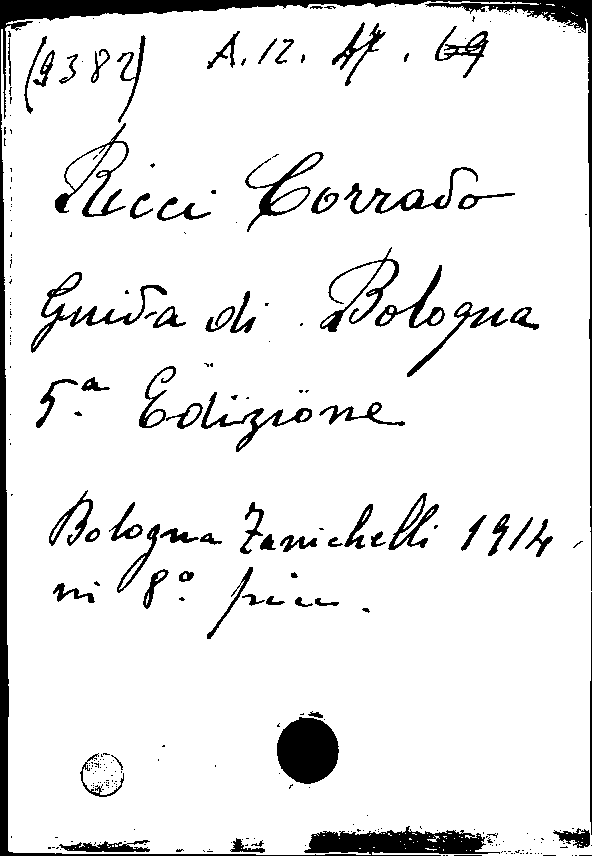 (9382) A. 12. 47. 69
Ricci Corrado
Guida di Bologna
5.ª Edizione
Bologna Zanichelli 1914
in 8.º picc.